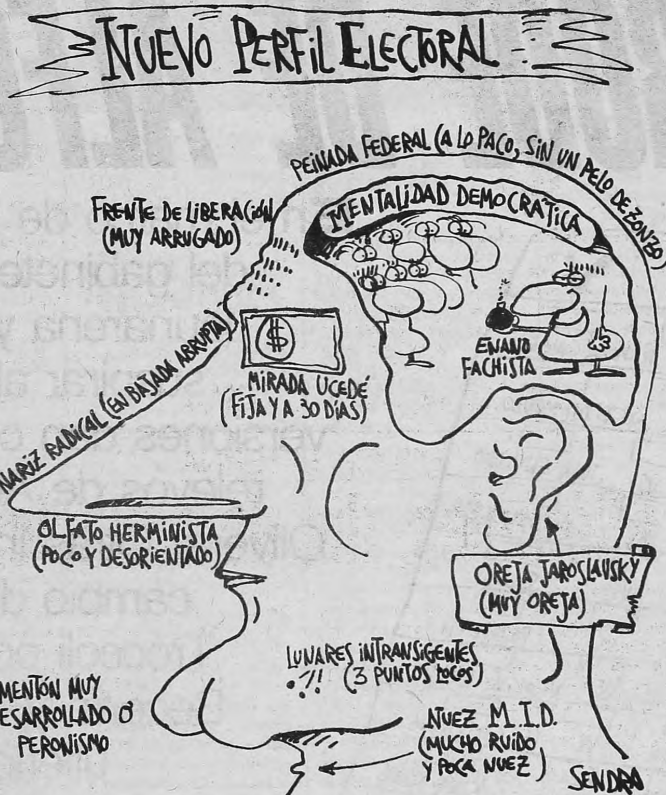 NUEVO PERFIL ELECTORAL
PEINADA FEDERAL (A LO PACO, SIN UN PELO DE ZONZO)
FRENTE DE LIBERACIÓN
(MUY ARRUGADO)
MENTALIDAD DEMOCRATICA
ENANO
FACHISTA
$
MIRADA UCEDÉ
(FIJA Y A 30 DÍAS)
NARIZ RADICAL (EN BAJADA ABRUPTA)
OLFATO HERMINISTA
(POCO Y DESORIENTADO)
OREJA JAROSLAVSKY
(MUY OREJA)
LUNARES INTRANSIGENTES
(3 PUNTOS LOCOS)
MENTÓN MUY
DESARROLLADO O
PERONISMO
NUEZ M.I.D.
(MUCHO RUIDO
Y POCA NUEZ)
SENDRA